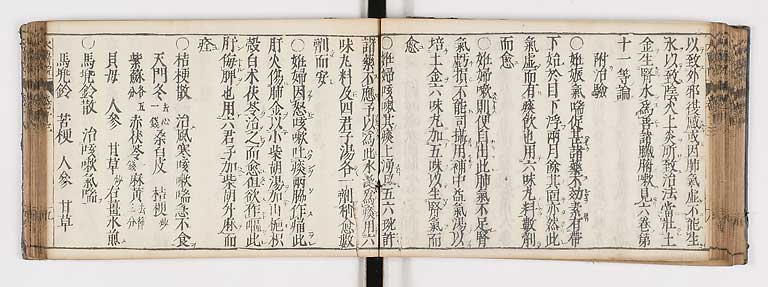 以致外邪復感或因肺氣虛不能生
水以致陰火上炎所致治法當壯土
金生腎水為善諸臟腑嗽見六卷第
十一等論
附治驗
○妊娠氣喘促甚諸藥不効素有帶
下始於目下浮兩月餘其面亦然此
氣虛而有痰飲也用六味丸料數劑
而愈
○妊婦咳嗽則便自出此肺氣不足腎
氣虧損不能司攝用補中益氣湯以
培土金六味丸加五味以生腎氣而
愈
○妊婦咳嗽其痰上湧日五六碗許
諸藥不應予以為此水泛為痰用六
味丸料及四君子湯各一劑稍愈數
劑而安
○妊婦因怒咳嗽吐痰兩脇作痛此
肝火傷肺金以小柴胡湯加山梔枳
殼白术茯苓治之而愈但欲作嘔此
肝侮脾也用六君子加柴胡升麻而
痊
○桔梗散 治風寒咳嗽喘急不食
天門冬 去心一錢 桑白皮 桔梗 炒
紫蘇 各五分 赤茯苓 一錢 麻黃 去節三分
貝母 人參 甘草 炒 右薑水煎
○馬兜鈴散 治咳嗽氣喘
馬兜鈴 苦梗 人參 甘草